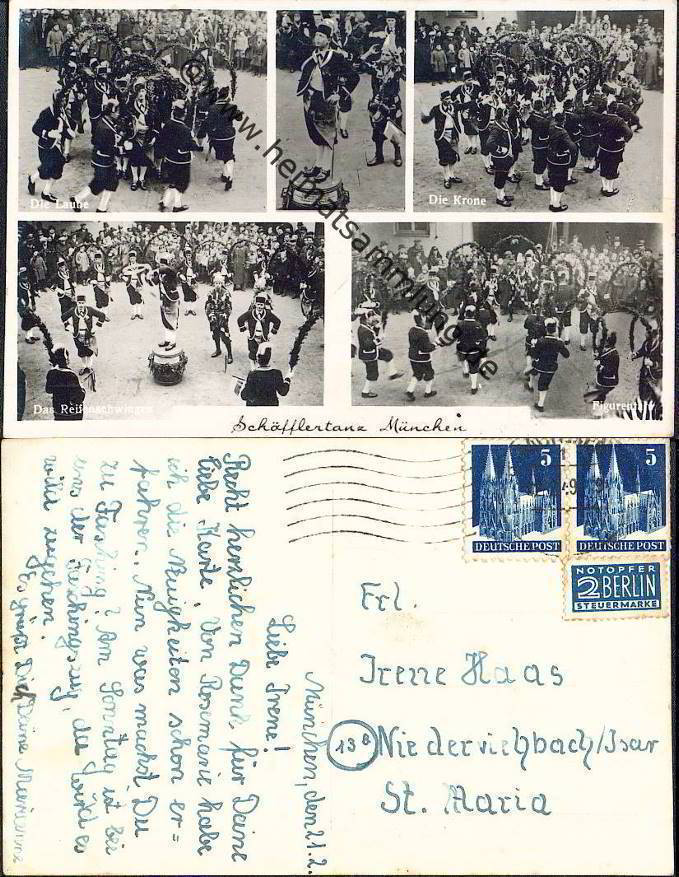 Die Laube
Die Krone
Das Reifenschwingen
Figurentanz
Schäfflertanz München
www.heimatsammlung.de
5
5
DEUTSCHE POST
DEUTSCHE POST
NOTOPFER
2 BERLIN
STEUERMARKE
München, den 21.2.
Liebe Irene!
Recht herzlichen Dank für Deine
liebe Karte. Von Rosemarie habe
ich die Neuigkeiten schon er=
fahren. Nun was machst Du
zu Fasching? Am Sonntag ist bei
uns der Faschingszug, da wird es
wild zugehen.
Es grüßt Dich Deine Marianne
Frl.
Irene Haas
(13b) Niederviehbach/Isar
St. Maria